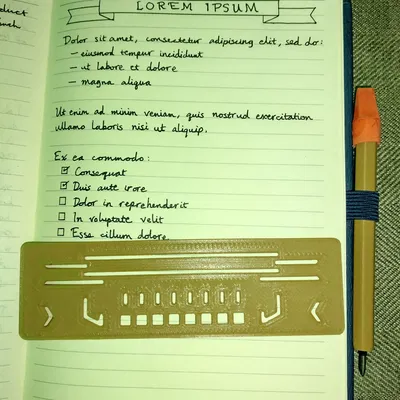 LOREM IPSUM
Dolor sit amet, consectetur adipiscing elit, sed do:
- eiusmod tempur incididunt
- ut labore et dolore
- magna aliqua
Ut enim ad minim veniam, quis nostrud exercitation
ullamo laboris nisi ut aliquip.
Ex ea commodo:
Consequat
Duis aute irore
Dolor in reprehenderit
In voluptate velit
Esse cillum dolore